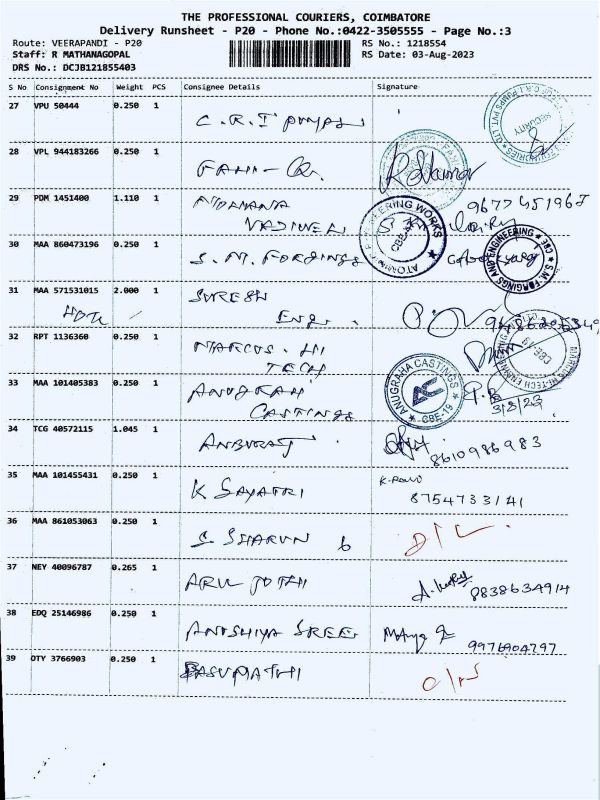 THE PROFESSIONAL COURIERS, COIMBATORE
Delivery Runsheet - P20 - Phone No.:0422-3505555 - Page No.:3
Route: VEERAPANDI - P20
RS No.: 1218554
Staff: R MATHANAGOPAL
RS Date: 03-Aug-2023
DRS No.: DCJB121855403
S No Consignment No Weight PCS Consignee Details Signature
27 VPU 50444 0.250 1 C.R.I PUMPS
SECURITY
28 VPL 944183266 0.250 1
29 PDM 1451400 1.110 1
30 MAA 860473196 0.250 1 S.M. FORGINGS
S.M. FORGINGS AND ENGINEERING CBE
31 MAA 571531015 2.000 1 SURESH
Engi.
32 RPT 1136360 0.250 1 MARCUS. HI
TECH
33 MAA 101405383 0.250 1 ANUGRAH
CASTINGS
ANUGRAHA CASTINGS CBE-19
3/8/23
34 TCG 40572115 1.045 1 ANBURAJ
8610986983
35 MAA 101455431 0.250 1 K SAYATRI
8754733141
36 MAA 861053063 0.250 1
37 NEY 40096787 0.265 1 ARUL JOTHI
9838634914
38 EDQ 25146986 0.250 1 ANUSHIYA SREE
9976904797
39 OTY 3766903 0.250 1 BASUMATHI